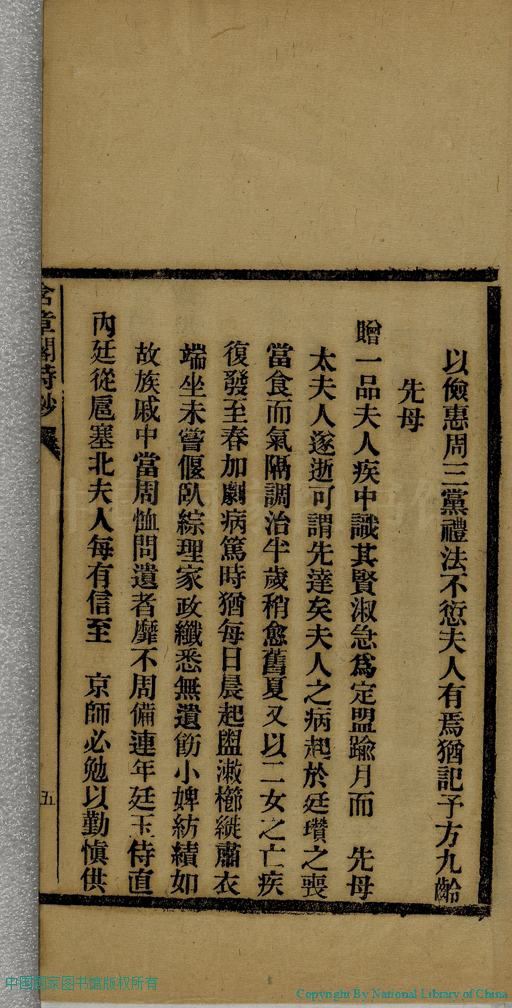 以儉惠周三黨禮法不愆夫人有焉猶記予方九齡
先母
贈一品夫人疾中識其賢淑急爲定盟踰月而　先母
太夫人遂逝可謂先達矣夫人之病起於廷瓚之喪
當食而氣隔調治半歲稍愈舊夏又以二女之亡疾
復發至春加劇病篤時猶每日晨起盥漱櫛縰肅衣
端坐未嘗偃臥綜理家政纖悉無遺飭小婢紡績如
故族戚中當周恤問遺者靡不周備連年廷玉侍直
內廷從扈塞北夫人每有信至　京師必勉以勤慎供
含章閣詩鈔
五
中国国家图书馆版权所有
Copyright By National Library of China